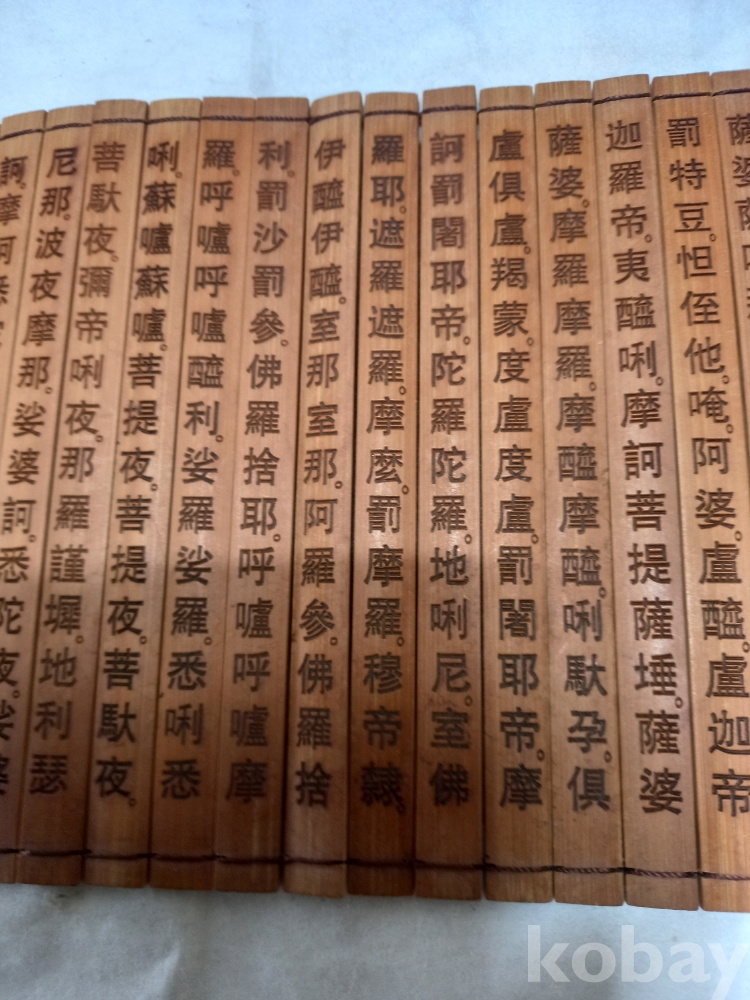 薩婆薩
罰特豆。怛侄他。唵。阿婆。盧醯。盧迦帝
迦羅帝。夷醯唎。摩訶菩提薩埵。薩婆
薩婆。摩羅摩羅。摩醯摩醯。唎馱孕。俱
盧俱盧。羯蒙。度盧度盧。罰闍耶帝。摩
訶罰闍耶帝。陀羅陀羅。地唎尼。室佛
羅耶。遮羅遮羅。摩麼。罰摩羅。穆帝隸。
伊醯伊醯。室那室那。阿羅參。佛羅捨
利。罰沙罰參。佛羅捨耶。呼嚧呼嚧摩
羅。呼嚧呼嚧醯利。娑羅娑羅。悉唎悉
唎。蘇嚧蘇嚧。菩提夜。菩提夜。菩馱夜。
菩馱夜。彌帝唎夜。那羅謹墀。地利瑟
尼那。波夜摩那。娑婆訶。悉陀夜。娑婆
訶。摩訶悉
kobay